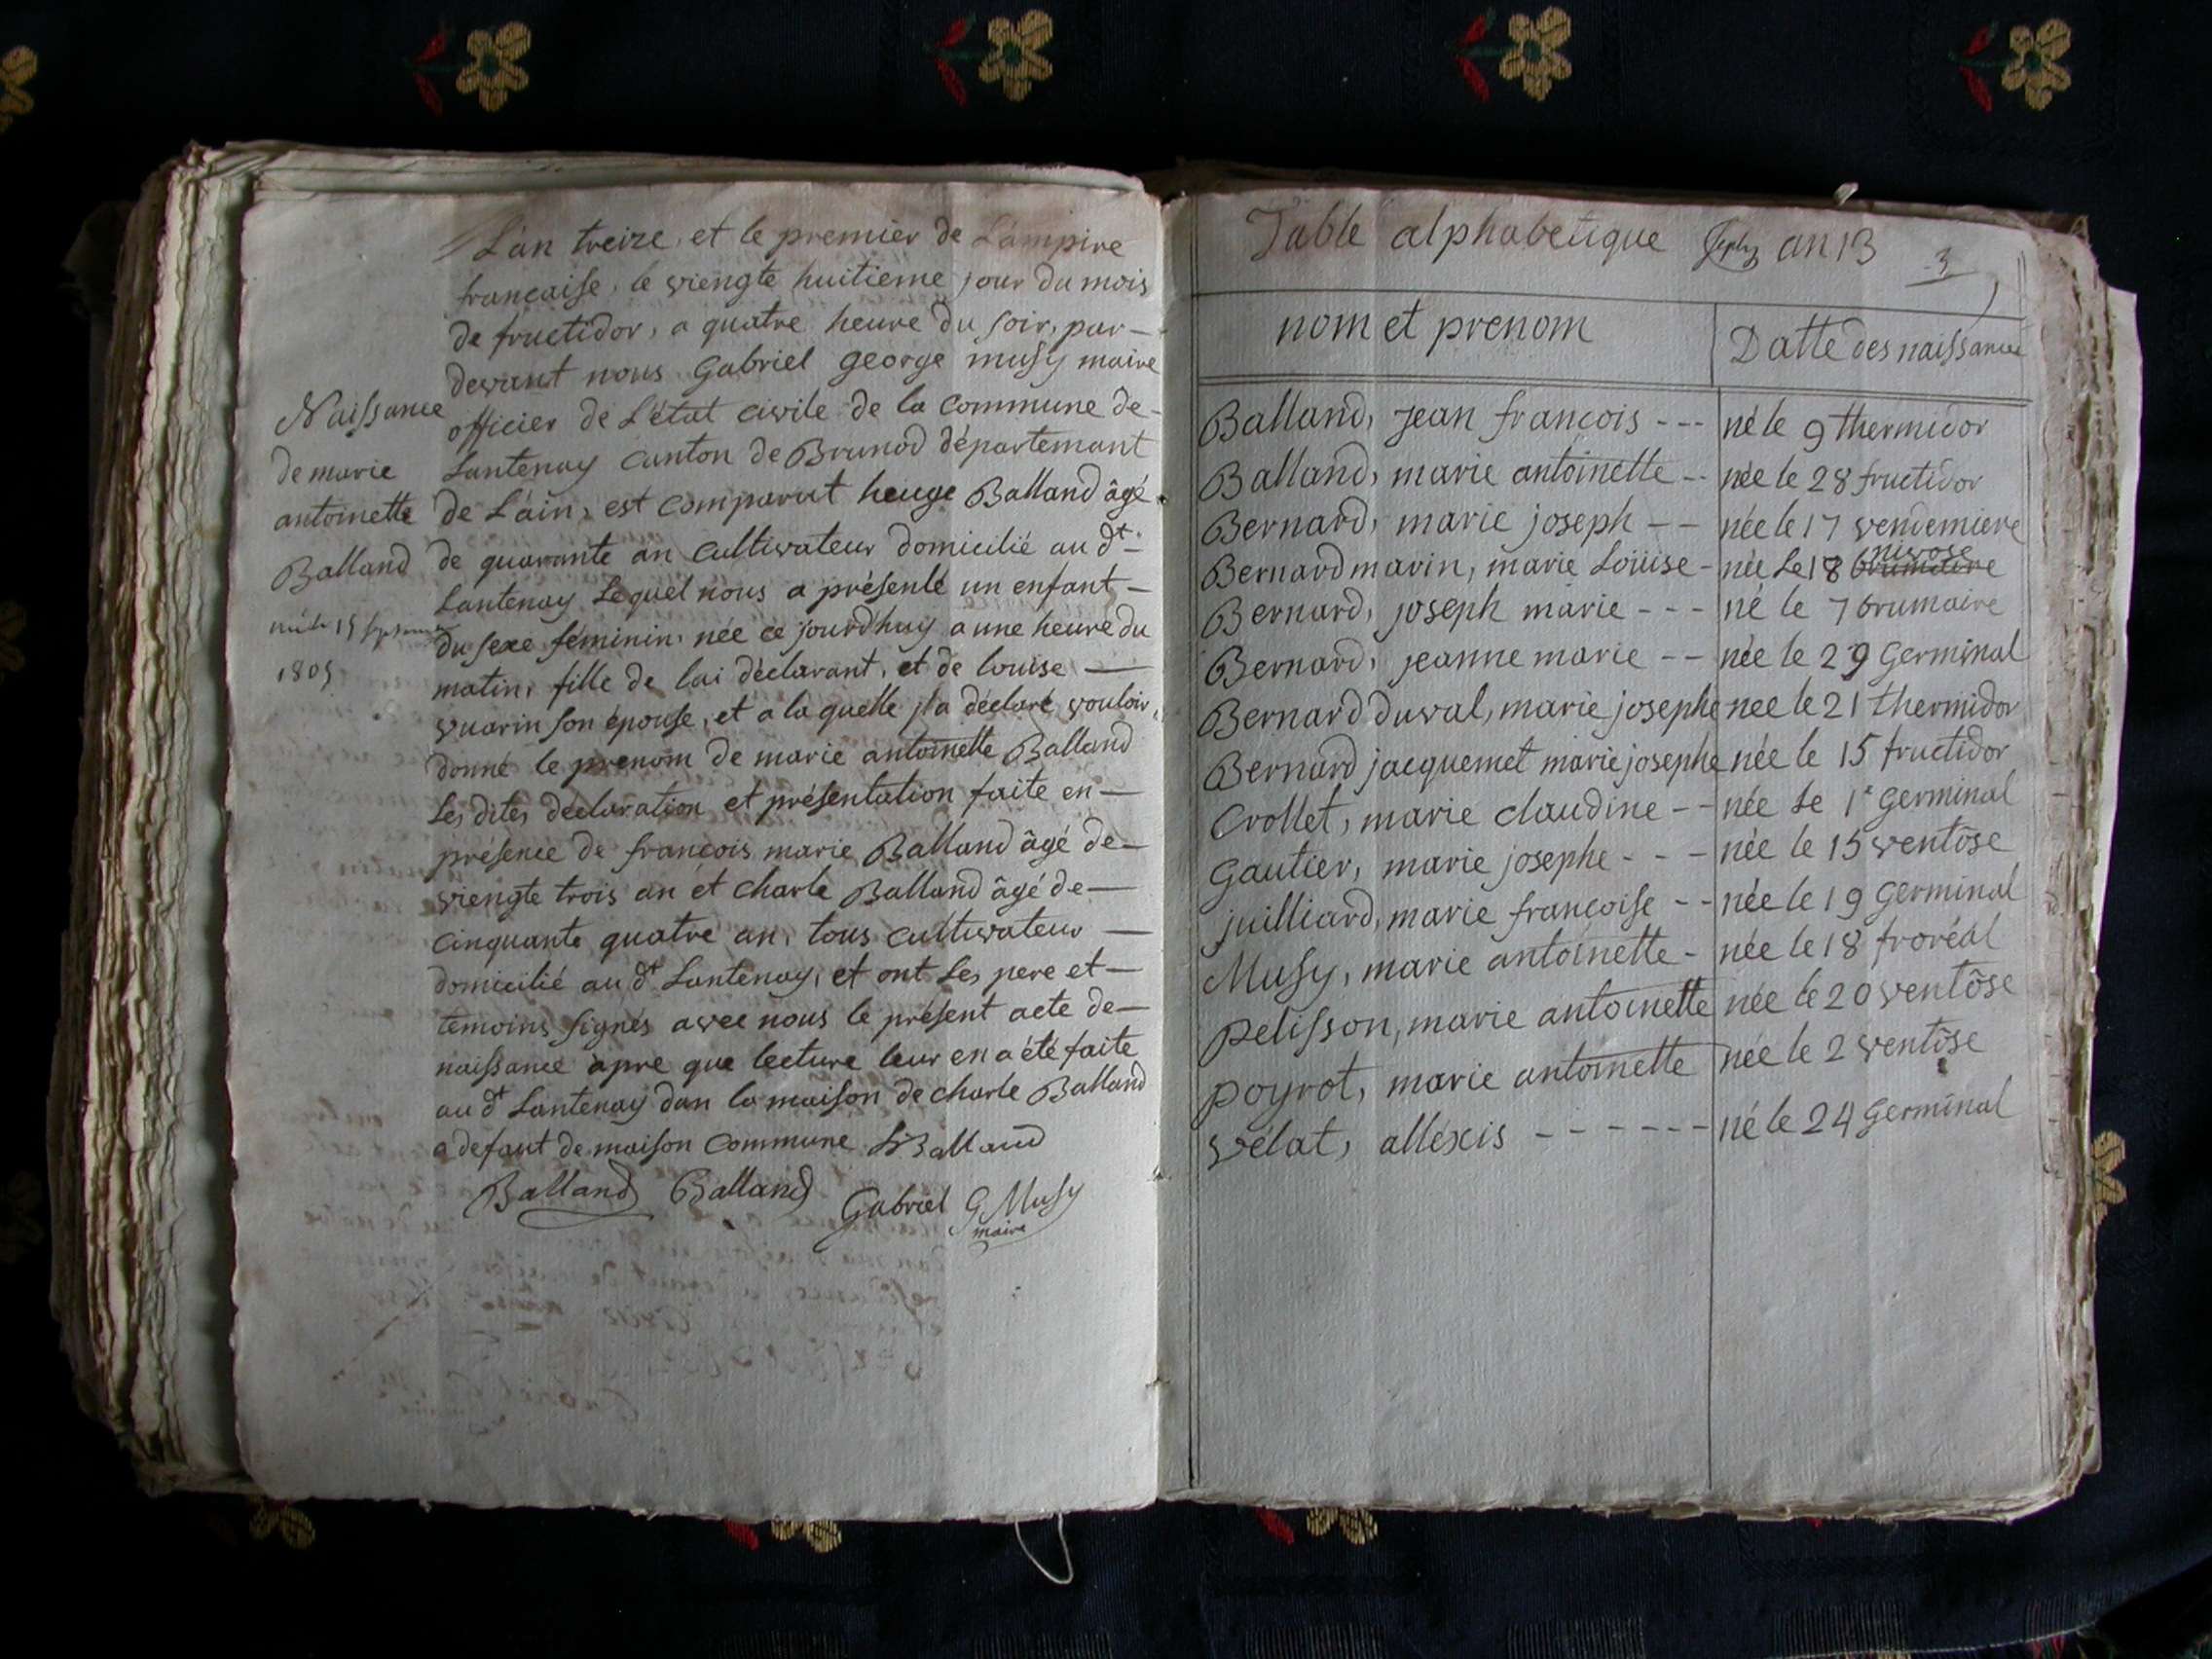 L'an treize, et le premier de L'ampire
francaise, le viengte huitieme jour du mois
de fructidor, a quatre heure du soir, par-
devant nous Gabriel george musy maire
officier de L'état civile de la commune de-
Lantenay canton de Brunod départemant
de L'ain, est comparut heuge Balland âgé
de quarante an cultivateur domicilié au dt
Lantenay Lequel nous a présenté un enfant-
du sexe féminin, née ce jourd'huy a une heure du
matin, fille de lai déclarant, et de louise
vuarin son épouse, et a la quelle jl a déclaré vouloir
donné le prenom de marie antoinette Balland
Les dites declaration et présentation faite en-
présence de francois marie Balland âgé de-
viengte trois an et charle Balland âgé de-
cinquante quatre an, tous cultivateur
domicilié au dt Lantenay, et ont Les pere et-
temoins signés avec nous le présent acte de-
naissance apre que lecture leur en a été faite
au dt Lantenay dan la maison de charle Balland
a defaut de maison commune Balland
Balland Balland Gabriel G Musy
maire
Naissance
de marie
antoinette
Balland
née le 15
1805
Table alphabetique an 13
3
nom et prenom Datte des naissance
Balland, jean francois --- né le 9 thermidor
Balland, marie antoinette -- née le 28 fructidor
Bernard, marie joseph -- née le 17 vendemiere
nivose
Bernard marin, marie Loüise - née Le 18 brumaire
Bernard, joseph marie --- né le 7 brumaire
Bernard, jeanne marie -- née le 29 Germinal
Bernard duval, marie josephe nee le 21 thermidor
Bernard jacquemet marie josephe née le 15 fructidor
Crollet, marie claudine -- née Le 1er Germinal
Gautier, marie josephe --- née le 15 ventôse
juilliard, marie francoise -- née le 19 Germinal
Musy, marie antoinette - née le 18 froréal
pelisson, marie antoinette née le 20 ventôse
poyrot, marie antoinette née le 2 ventôse
vélat, allexis ------ né le 24 Germinal